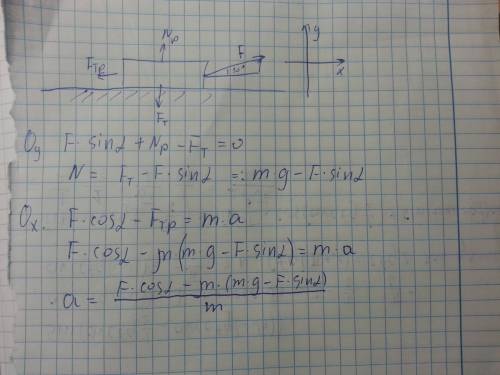 Nр
y
Fтр
F
30°
x
Fт
Oy F·sinα + Nр − Fт = 0
N = Fт − F·sinα =: m·g − F·sinα
Ox. F·cosα − Fтр = m·a
F·cosα − μ(m·g − F·sinα) = m·a
a = F·cosα − μ·(m·g − F·sinα)
m